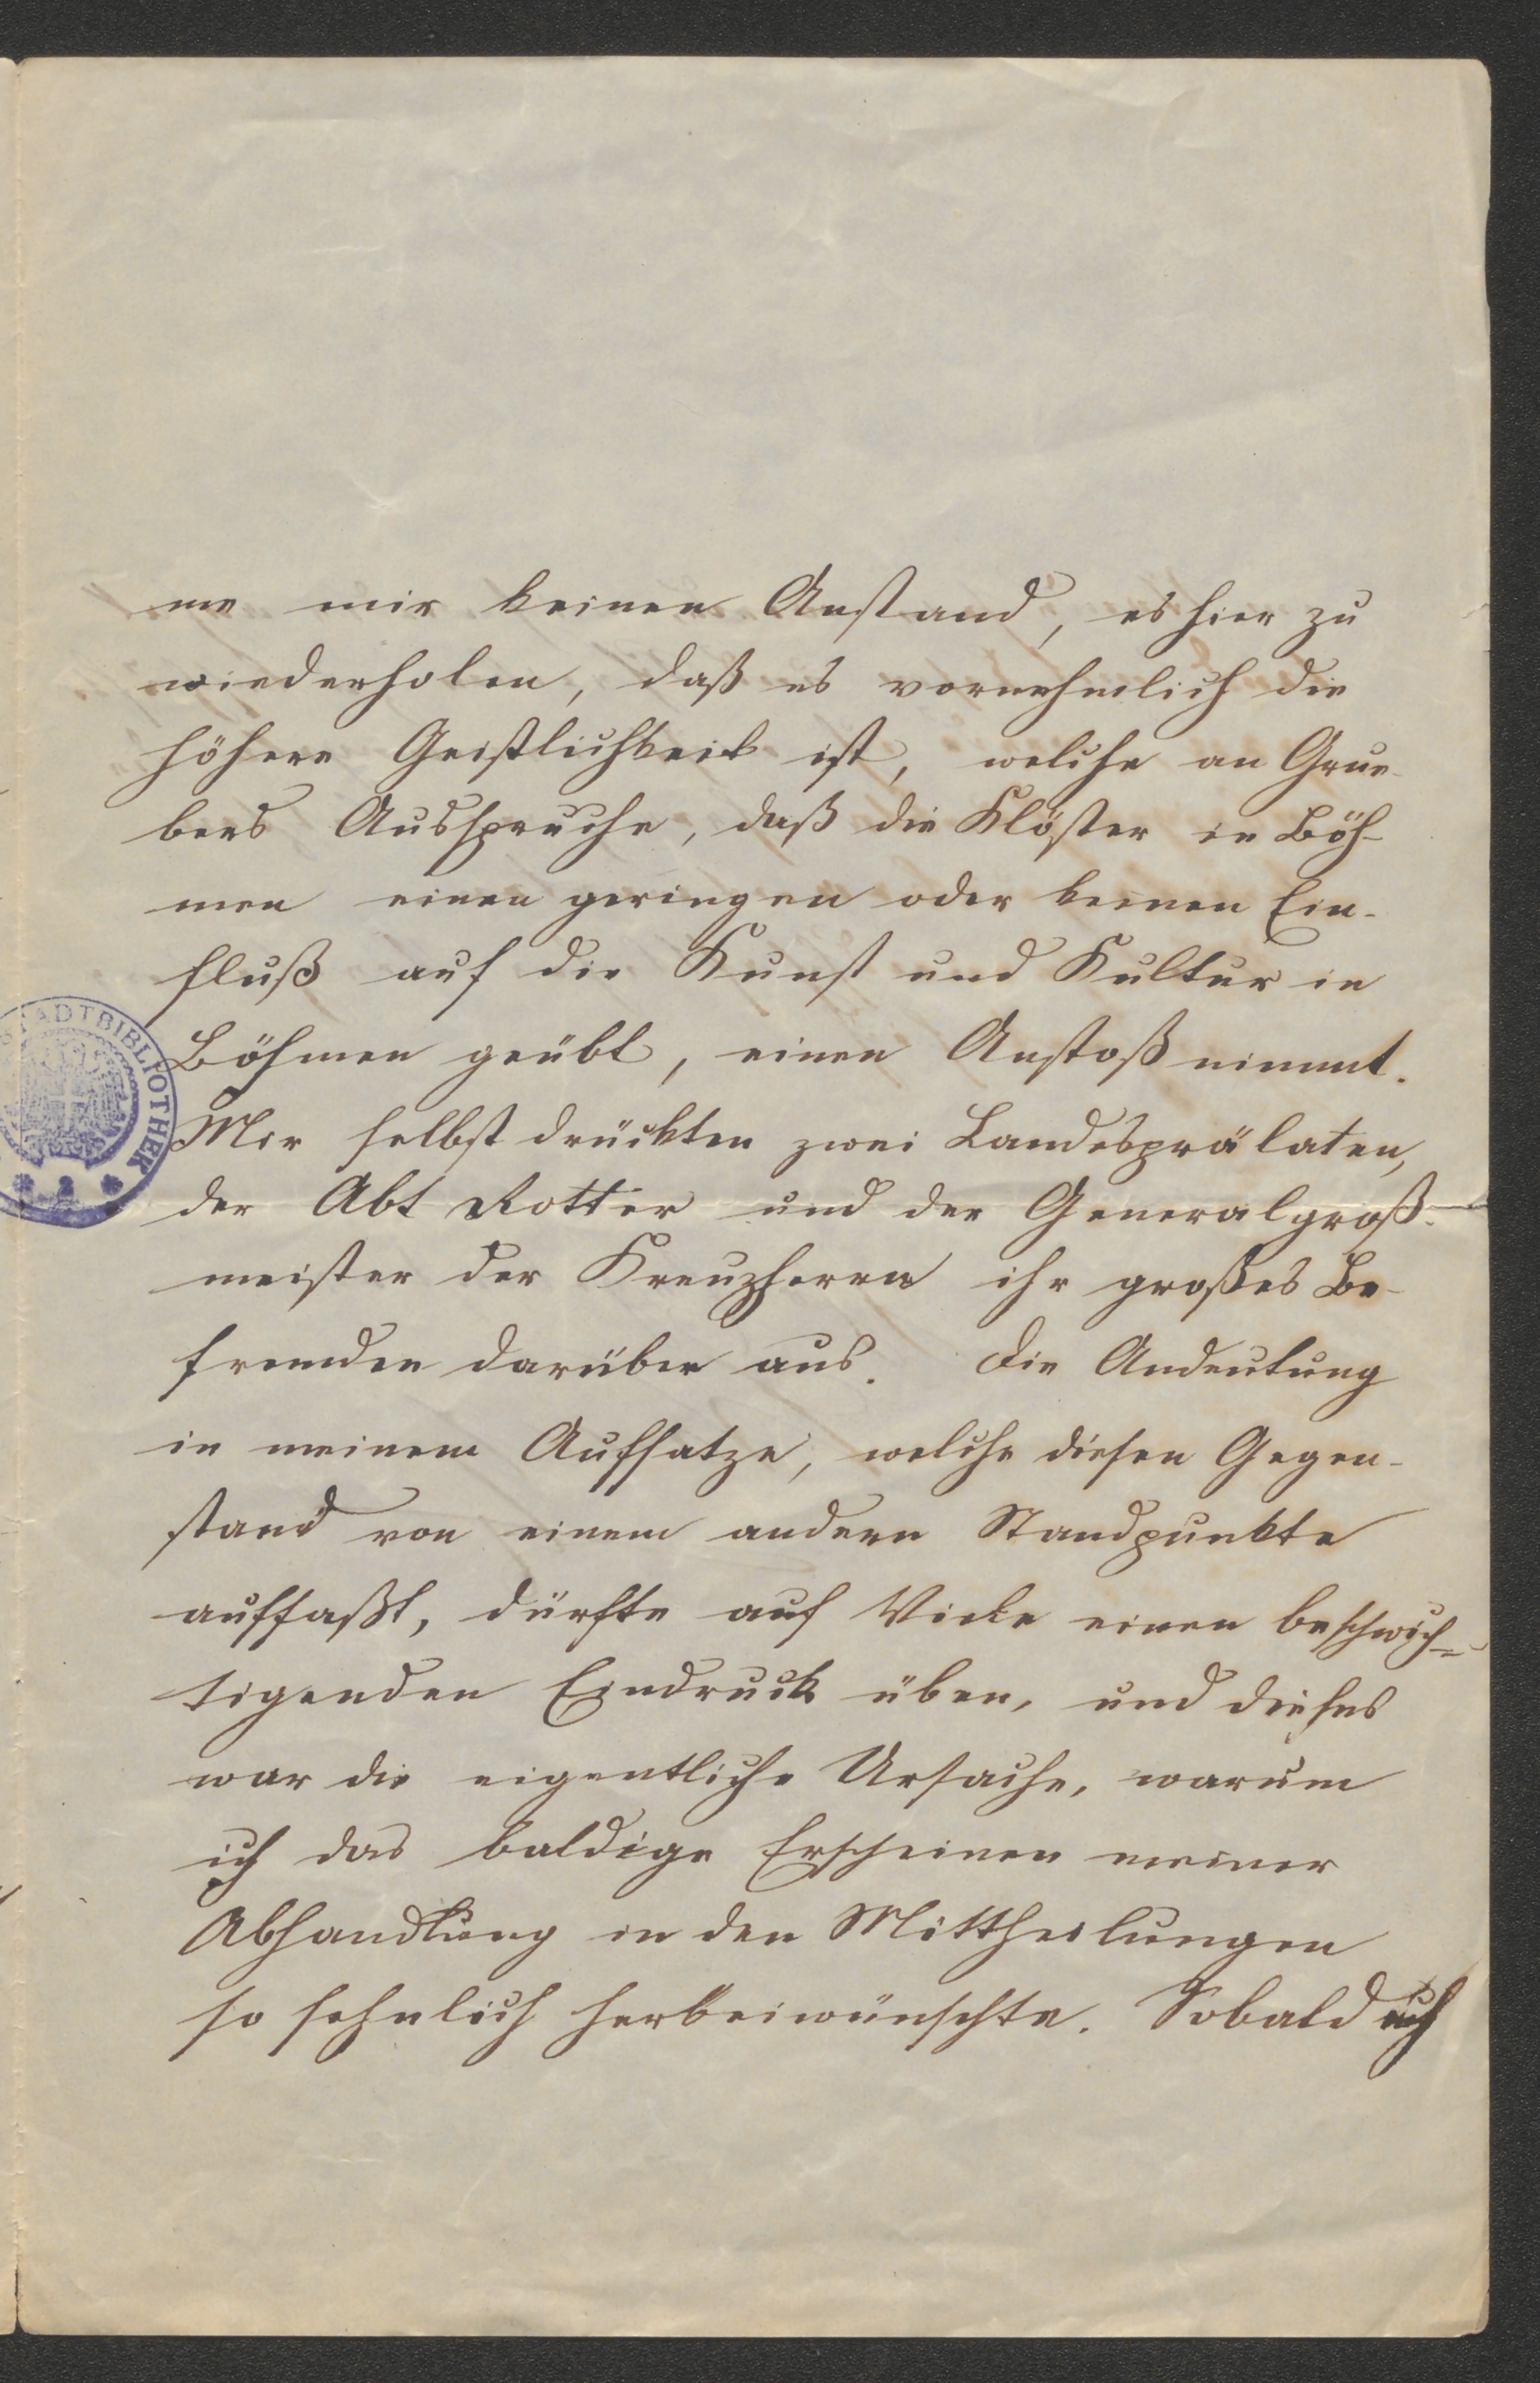 me mir keinen Anstand, es hier zu
wiederholen, daß es vornehmlich die
höhere Geistlichkeit ist, welche an Grue-
bers Ausspruche, daß die Klöster in Böh-
men einen geringen oder keinen Ein-
fluß auf die Kunst und Kultur in
Böhmen geübt, einen Anstoß nimmt.
Mir selbst drückten zwei Landesprälaten,
der Abt Rotter und der Generalgroß-
meister der Kreuzherrn ihr großes Be-
fremden darüber aus. Die Andeutung
in meinem Aufsatze, welche diesen Gegen-
stand von einem andern Standpunkte
auffaßt, dürfte auf Viele einen beschwich-
tigenden Eindruck üben, und dieses
war die eigentliche Ursache, warum
ich das baldige Erscheinen meiner
Abhandlung in den Mittheilungen
so sehnlich herbeiwünschte. Sobald ich
STADTBIBLIOTHEK